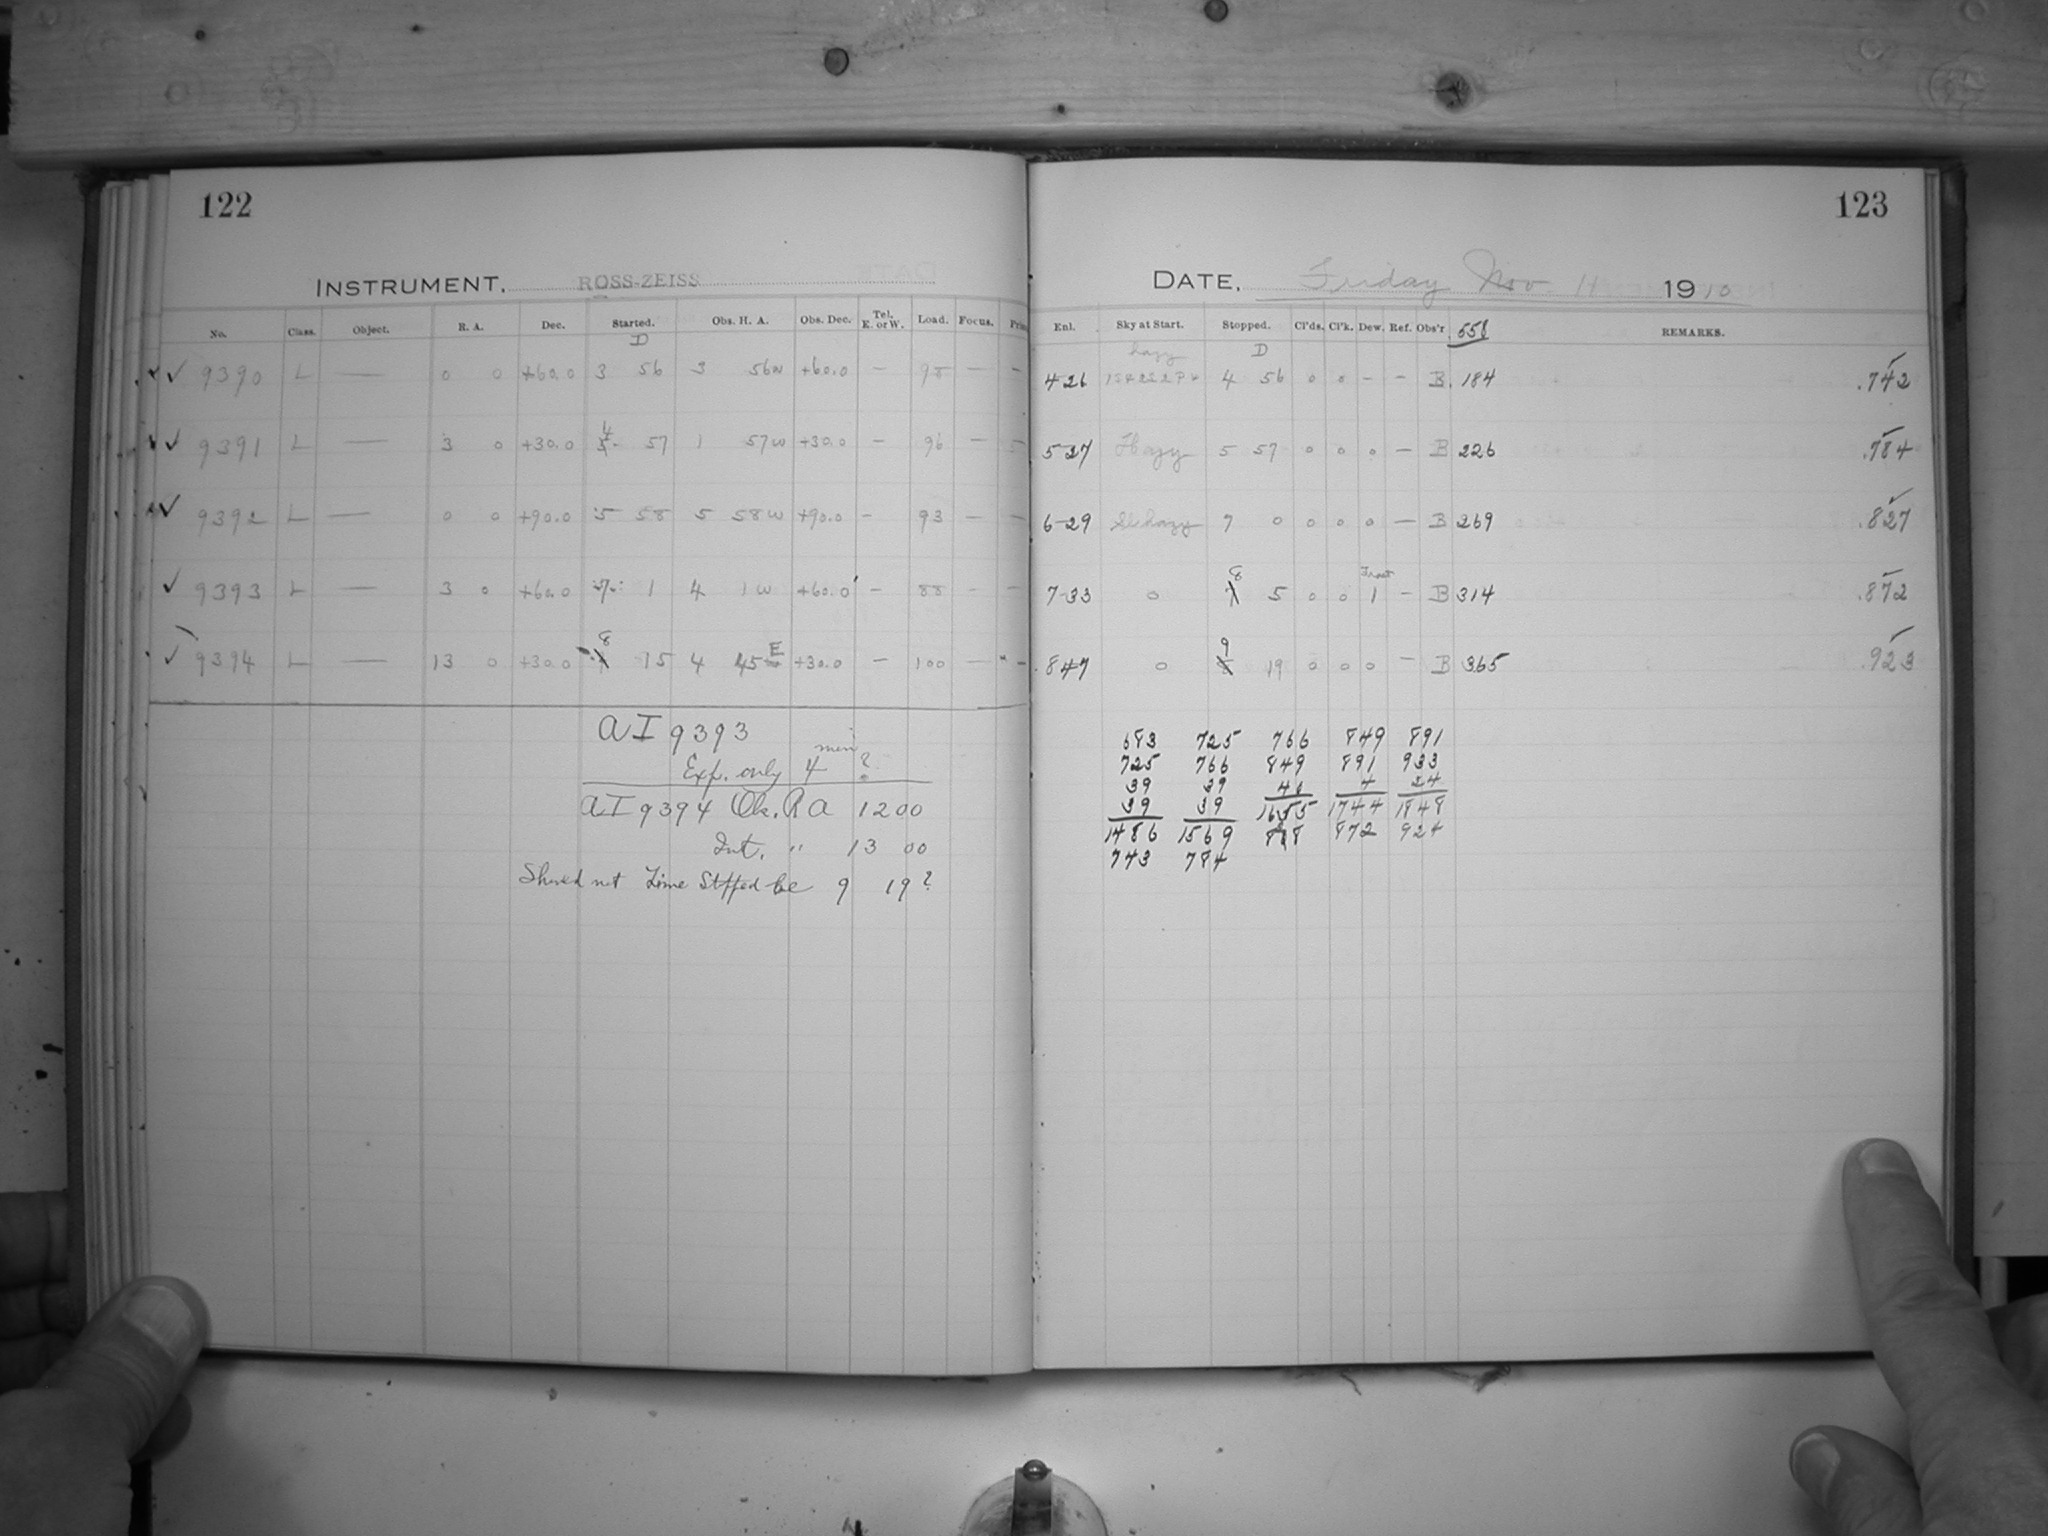 122
INSTRUMENT. ROSS-ZEISS
No. Class. Object. R. A. Dec. Started. Obs. H. A. Obs. Dec. Tel. E. or W. Load. Focus.
D
✓ 9390 L — 0 0 +60.0 3 56 3 56w +60.0 — 98 — —
✓ 9391 L — 3 0 +30.0 4 57 1 57w +30.0 — 96 —
✓ 9392 L — 0 0 +90.0 5 58 5 58w +90.0 — 93 — —
✓ 9393 L — 3 0 +60.0 7 1 4 1w +60.0 — 88 — —
✓ 9394 L — 13 0 +30.0 8 15 4 45 E +30.0 — 100 — —
AI 9393
Exp. only 4 min ?
AI 9394 Ok. RA 12 00
Int. " 13 00
Should not Time Stopped be 9 19 ?
123
DATE. Friday Nov 1910
Enl. Sky at Start. Stopped. Cl'ds. Cl'k. Dew. Ref. Obs'r. 558 REMARKS.
hazy D
4 26 4 56 0 0 — — B. 184 .742
5 27 Hazy 5 57 0 0 0 — B 226 .784
6 29 Sl hazy 7 0 0 0 0 — B 269 .827
8 Frost
7 33 0 7 5 0 0 1 — B 314 .872
9
8 47 0 8 19 0 0 0 — B 365 .923
683 725 766 849 891
725 766 849 891 933
39 39 4 24
39 39 1655 1744 1848
1486 1569 872 924
743 784